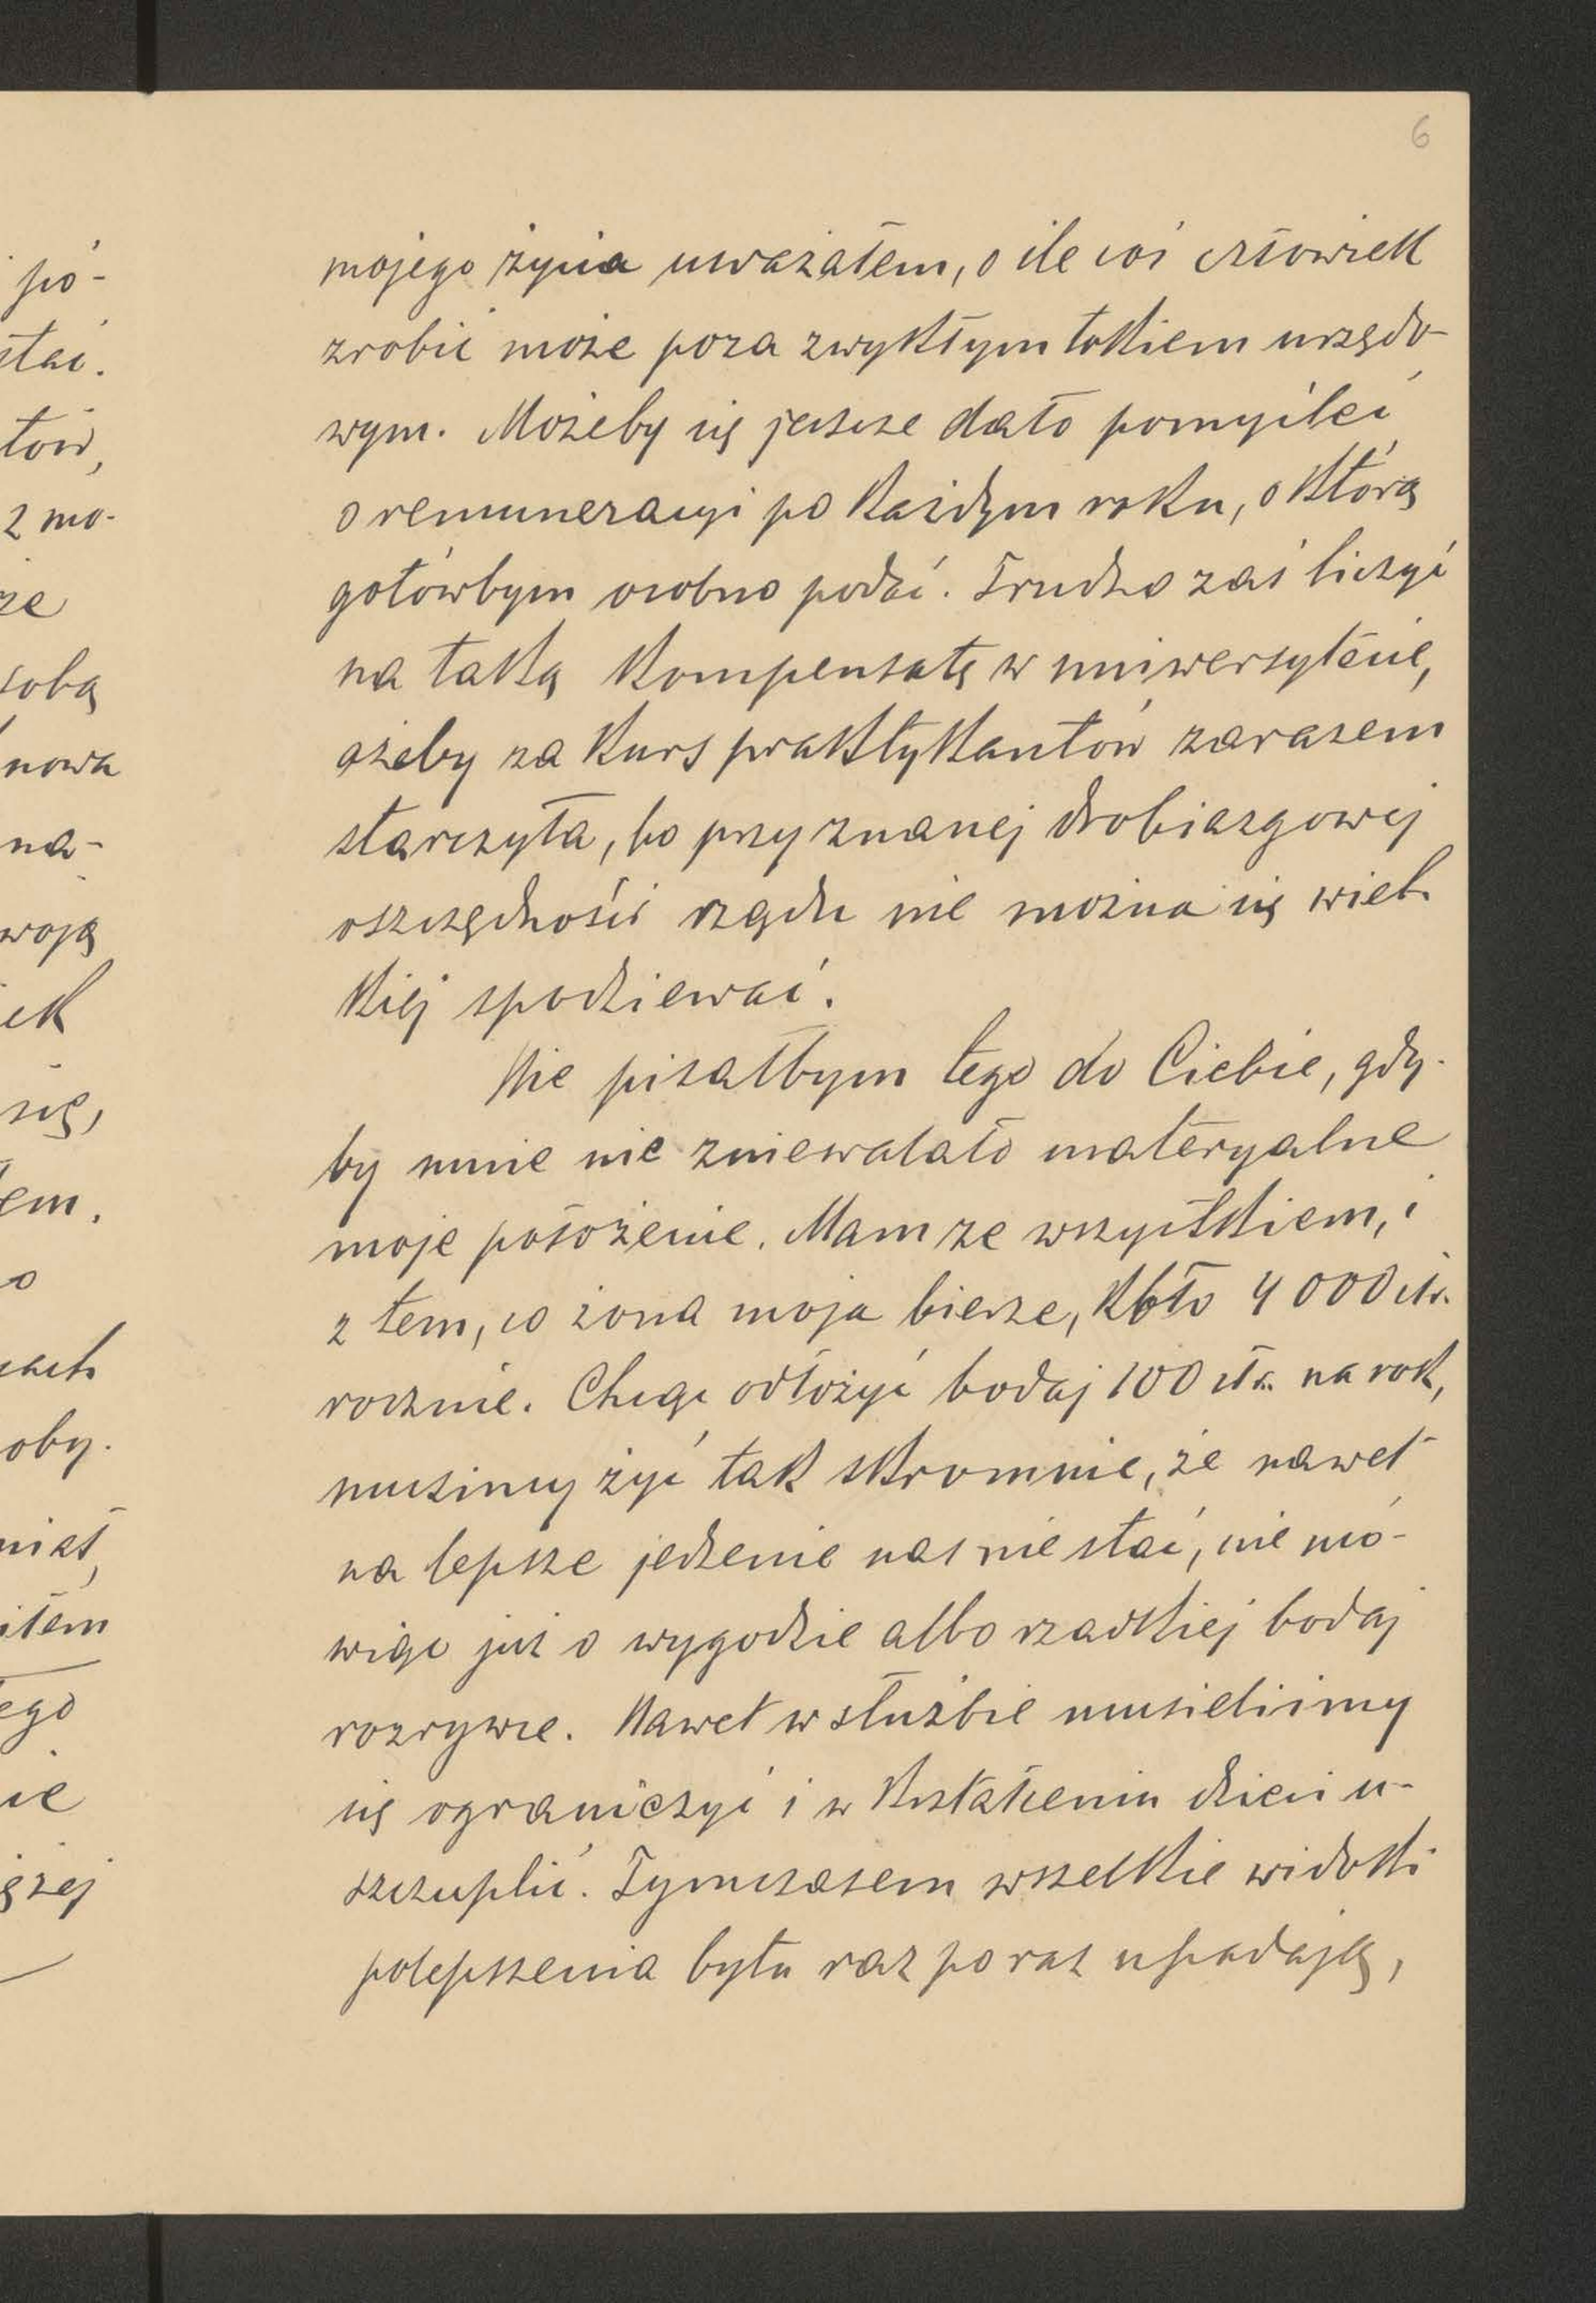 6
mojego życia uważałem, o ile coś człowiek
zrobić może poza zwykłym tokiem urzędo-
wym. Możeby się jeszcze dało pomyśleć
o remuneracyi po każdym roku, o którą
gotówbym osobno podać. Trudno zaś liczyć
na taką kompensatę w uniwersytecie,
ażeby za kurs praktykantów zarazem
starczyła, bo przy znanej drobiazgowej
oszczędności rządu nie można się wiel-
kiej spodziewać.
Nie pisałbym tego do Ciebie, gdy-
by mnie nie zniewalało materyalne
moje położenie. Mam ze wszystkiem, i
z tem, co żona moja bierze, koło 4000 złr.
rocznie. Chcąc odłożyć bodaj 100 złr. na rok,
musimy żyć tak skromnie, że nawet
na lepsze jedzenie nas nie stać, nie mó-
wiąc już o wygodzie albo rzadkiej bodaj
rozrywce. Nawet w służbie musieliśmy
się ograniczyć i w kształceniu dzieci u-
szczuplić. Tymczasem wszelkie widoki
polepszenia bytu raz po raz upadają,
pó-
stać.
tów,
z mo-
że
sobą
nowa
na-
woją
iek
się,
tem.
o
oby.
ego
nie